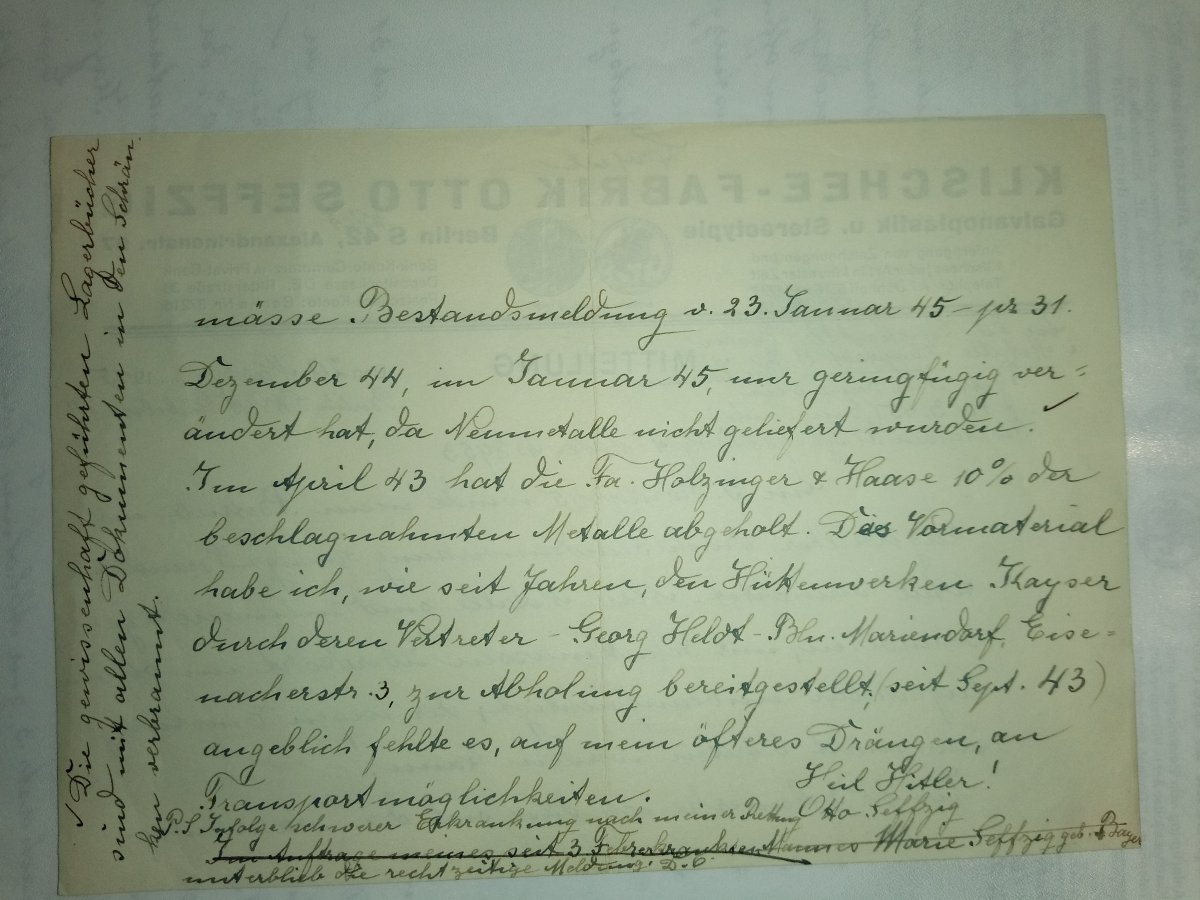 mässe Bestandsmeldung v. 23. Januar 45 - pr 31.
Dezember 44, im Januar 45, nur geringfügig ver=
ändert hat, da Neumetalle nicht geliefert wurden.
Im April 43 hat die Fa. Holzinger & Haase 10% der
beschlagnahmten Metalle abgeholt. Das Vormaterial
habe ich, wie seit Jahren, den Hüttenwerken Kayser
durch deren Vertreter - Georg Heldt - Bln. Mariendorf, Eise=
nacherstr. 3, zur Abholung bereitgestellt, (seit Sept. 43)
angeblich fehlte es, auf mein öfteres Drängen, an
Transportmöglichkeiten.
Heil Hitler!
Otto Seffzig
P.S Infolge schwerer Erkrankung nach meiner Rettung
Im Auftrage meines seit 3. Febr erkrankten Mannes Marie Seffzig geb. Bayer
unterblieb die rechtzeitige Meldung. D. O.
Die gewissenhaft geführten Lagerbücher
sind mit allen Dokumenten in den Schrän
ken verbrannt.
KLISCHEE-FABRIK OTTO SEFFZI
Galvanoplastik u. Stereotypie
Berlin S 42, Alexandrinenstr.
MITTEILUNG